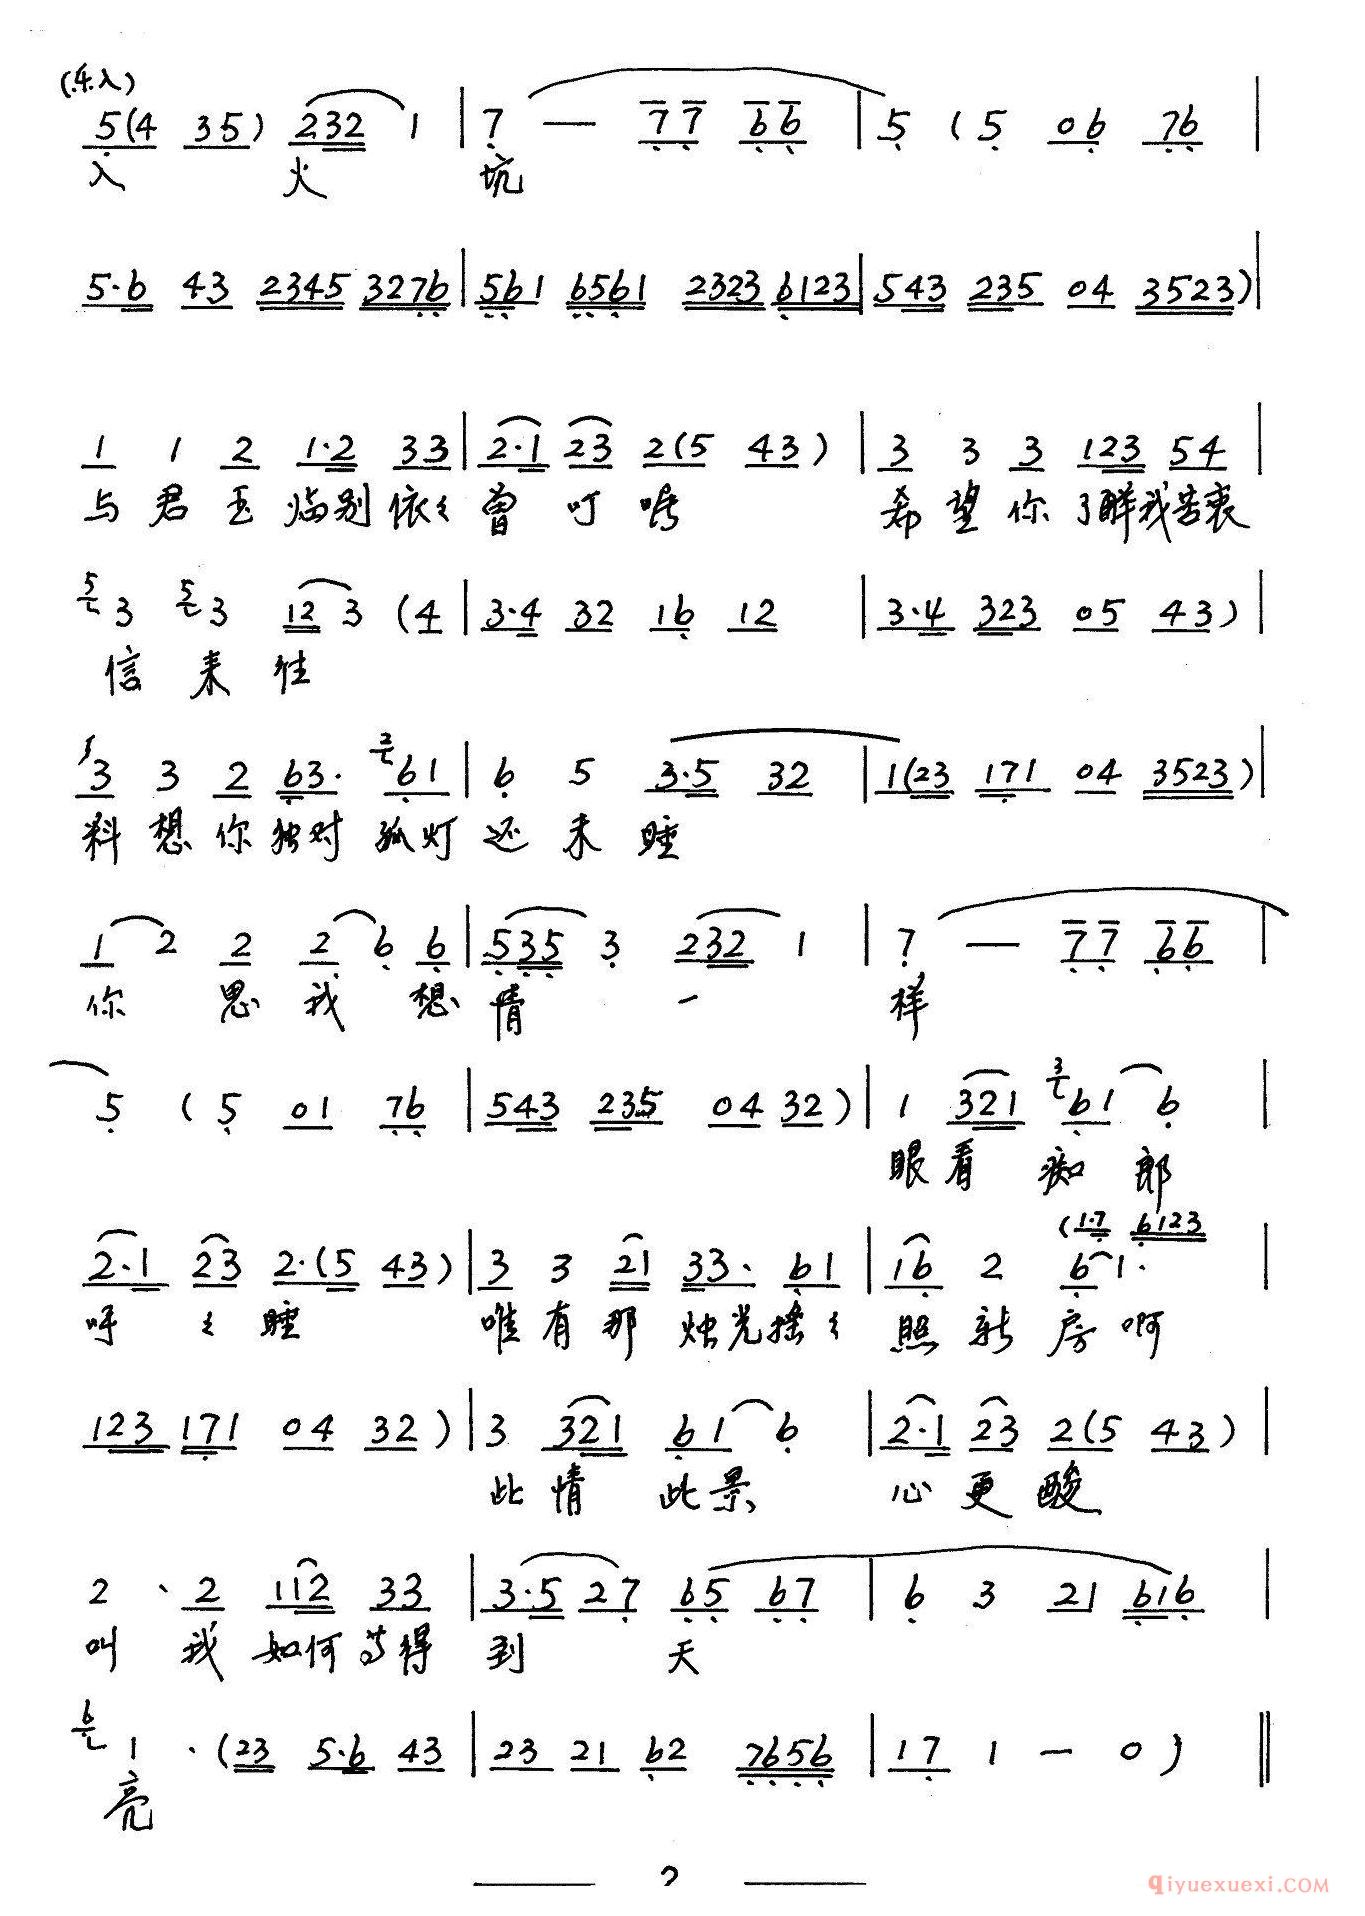 (乐入)
5(4 35) 232 1 | 7 — 77 66 | 5 (5 06 76
入 火 坑
5·6 43 2345 3276 | 561 6561 2323 6123 | 543 235 04 3523) |
1 1 2 1·2 33 | 2·1 23 2(5 43) | 3 3 3 123 54 |
与 君 玉 临别 依〻 曾 叮 咛 希 望 你 了解我苦衷
5 3 5 3 12 3 (4 | 3·4 32 16 12 | 3·4 323 05 43) |
信 来 往
3 3 2 63· 2 61 | 6 5 3·5 32 | 1(23 171 04 3523) |
料 想 你 独对 孤灯 还 未 睡
1 2 2 2 6 6 | 535 3 232 1 | 7 — 77 66 |
你 思 我 想 情 一 样
5 (5 01 76 | 543 235 04 32) | 1 321 3 61 6 |
眼 看 痴 郎
(1·7 6123
2·1 23 2·(5 43) | 3 3 21 33· 61 | 16 2 6 1· |
呼 〻 睡 唯 有 那 烛光 摇〻 照 新 房 啊
123 171 04 32) | 3 321 61 6 | 2·1 23 2(5 43) |
此 情 此 景 心 更 酸
2 · 2 112 33 | 3·5 27 65 67 | 6 3 21 616 |
叫 我 如何 等得 到 天
6 1 · (23 5·6 43 | 23 21 62 7656 | 17 1 — 0) ‖
亮
2
qiyuexuexi.COM